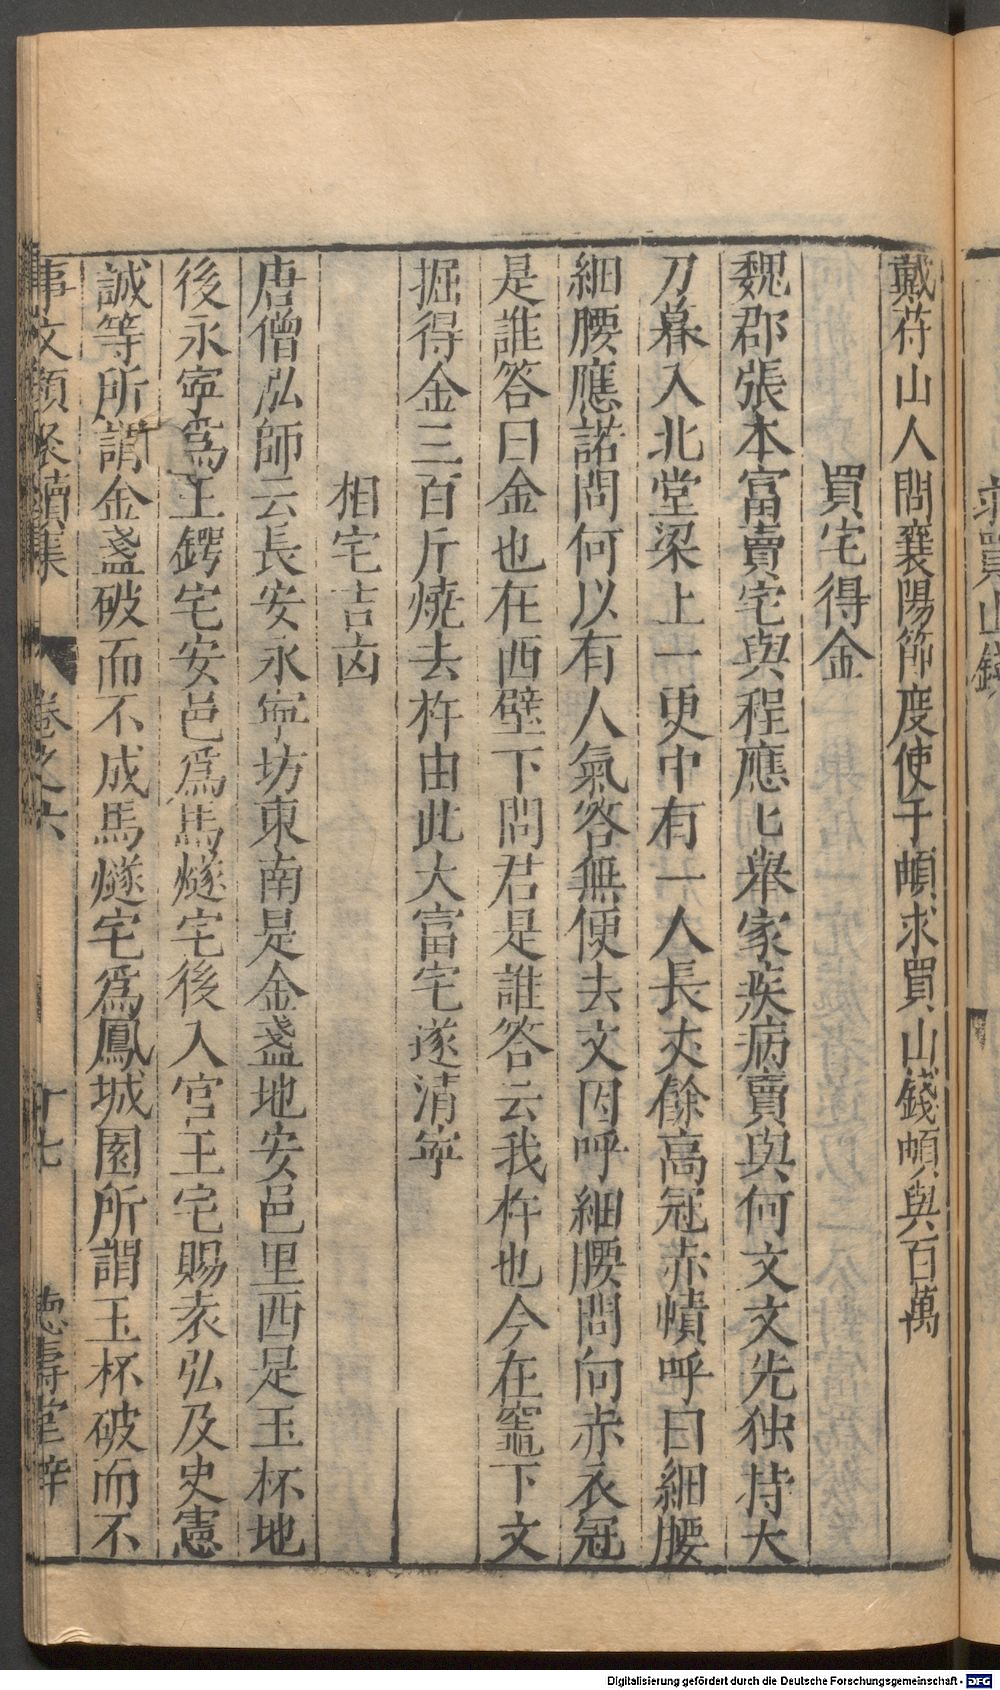 戴苻山人問襄陽節度使于頔求買山錢頔與百萬
買宅得金
魏郡張本富賣宅與程應匕舉家疾病賣與何文文先独持大
刀暮入北堂梁上一更中有一人長𠀋餘高冠赤幘呼曰細腰
細腰應諾問何以有人氣答無便去文因呼細腰問向赤衣冠
是誰答曰金也在西壁下問君是誰答云我杵也今在竈下文
掘得金三百斤燒去杵由此大富宅遂清寧
相宅吉凶
唐僧泓師云長安永寧坊東南是金盞地安邑里西是玉杯地
後永寧爲王鍔宅安邑爲馬燧宅後入官王宅賜袁弘及史憲
誠等所謂金盞破而不成馬燧宅爲鳳城園所謂玉杯破而不
事文類聚續集
卷之六
十七
德壽堂梓
Digitalisierung gefördert durch die Deutsche Forschungsgemeinschaft - DFG